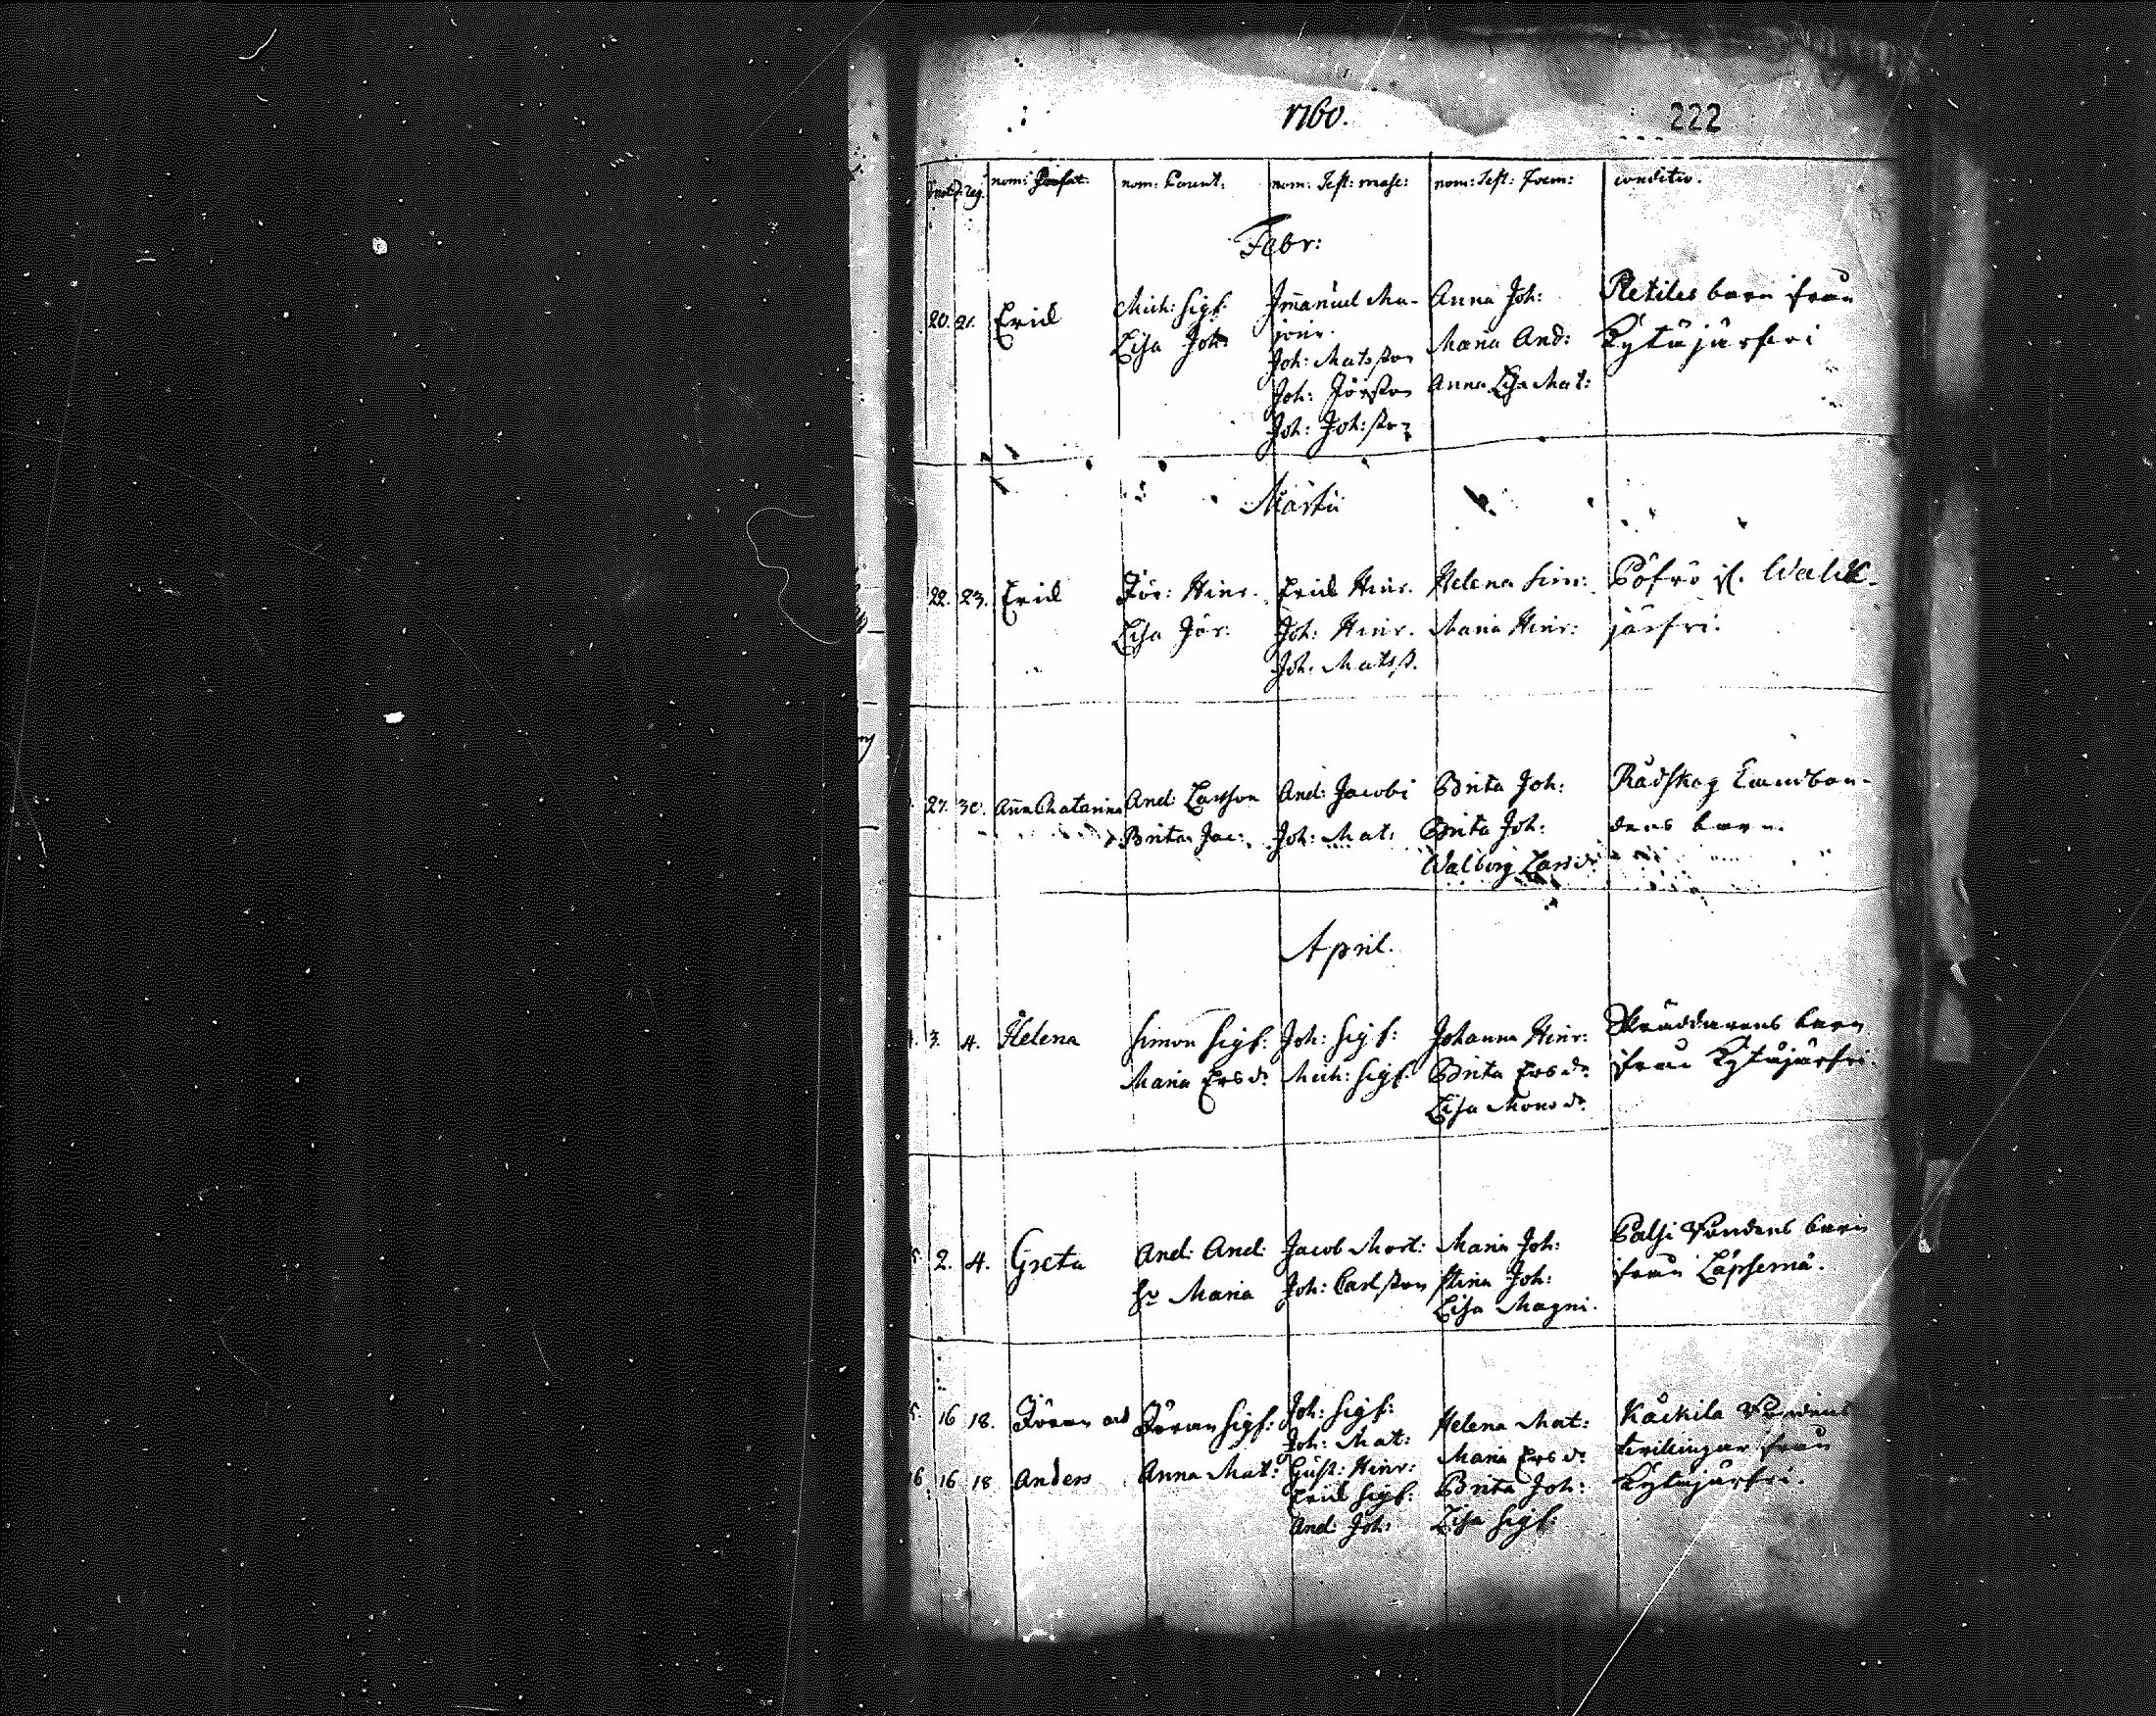 1760.
222
nat: reg: nom: Infant: nom: Parent: nom: Test: masc: nom: Test: Foem: conditio.
Febr:
20. 21. Eric
Mich: Sigf:
Lisa Joh:
Imanuel Ma-
jour.
Joh: Matsson
Joh: Jörsson
Joh: Joh:sson
Anna Joh:
Maria And:
Anna Lisa Mat:
barn från
Kytäjärfvi
Martii
22. 23. Eric
Jör: Hinr.
Lisa Jör:
Eric Hinr.
Joh: Hinr.
Joh: Matss.
Helena Hinr:
Maria Hinr:
Walk-
järfvi.
27. 30. Anna Catarina
And: Larsson
Brita Jac:
And: Jacobi
Joh: Mat:
Brita Joh:
Brita Joh:
Walborg Larsdr
Rådskog Landbon-
dens barn.
April.
3. 4. Helena
Simon Sigf:
Maria Ersdr
Joh: Sigf:
Mich: Sigf:
Johanna Hinr:
Brita Ersdr
Lisa Monsdr
Skräddarens barn
från Kytäjärfvi.
2. 4. Greta
And: And:
hr Maria
Jacob Mort:
Joh: Carlsson
Maria Joh:
Stina Joh:
Lisa Magni.
Palsi Bondens barn
från Läpsemä.
16 18. Jöran och
6 16 18 Anders
Jöran Sigf:
Anna Mat:
Joh: Sigf:
Joh: Mat:
Gust: Hinr:
Eric Sigf:
And: Joh:
Helena Mat:
Maria Ersdr
Brita Joh:
Lisa Sigf:
Bondens
tvillingar från
Kytäjärfvi.